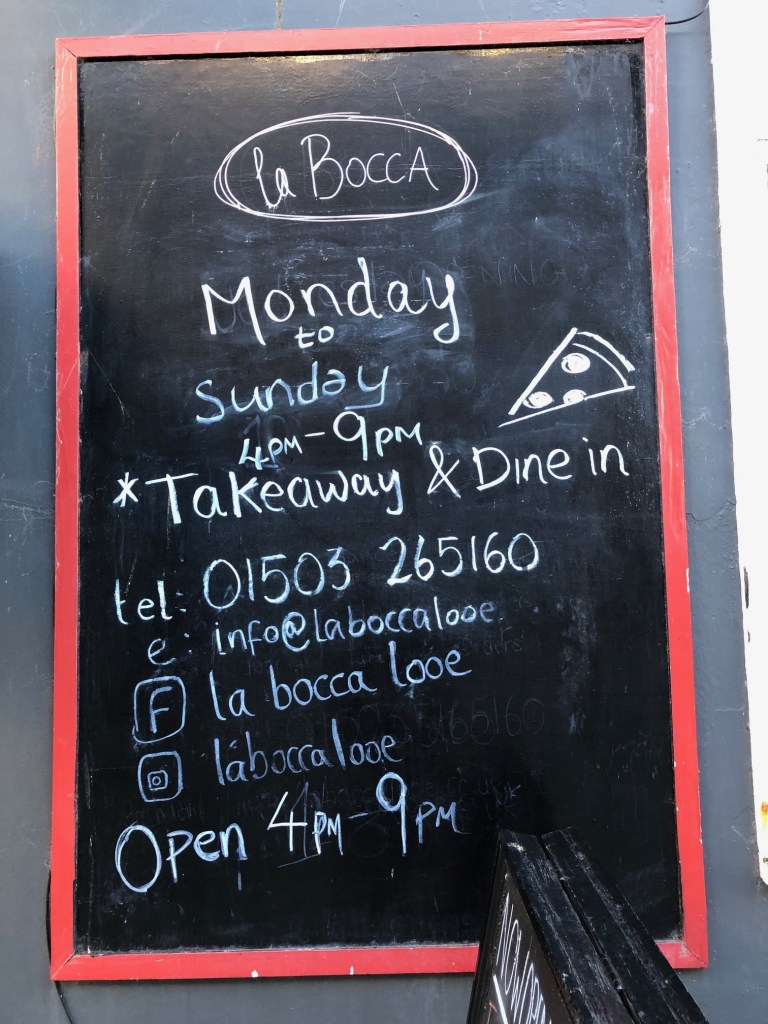 la BOCCA
Monday
to
Sunday
4PM - 9PM
*Takeaway & Dine in
tel: 01503 265160
e: info@laboccalooe.
F la bocca looe
laboccalooe
Open 4PM - 9PM
NOW OPEN